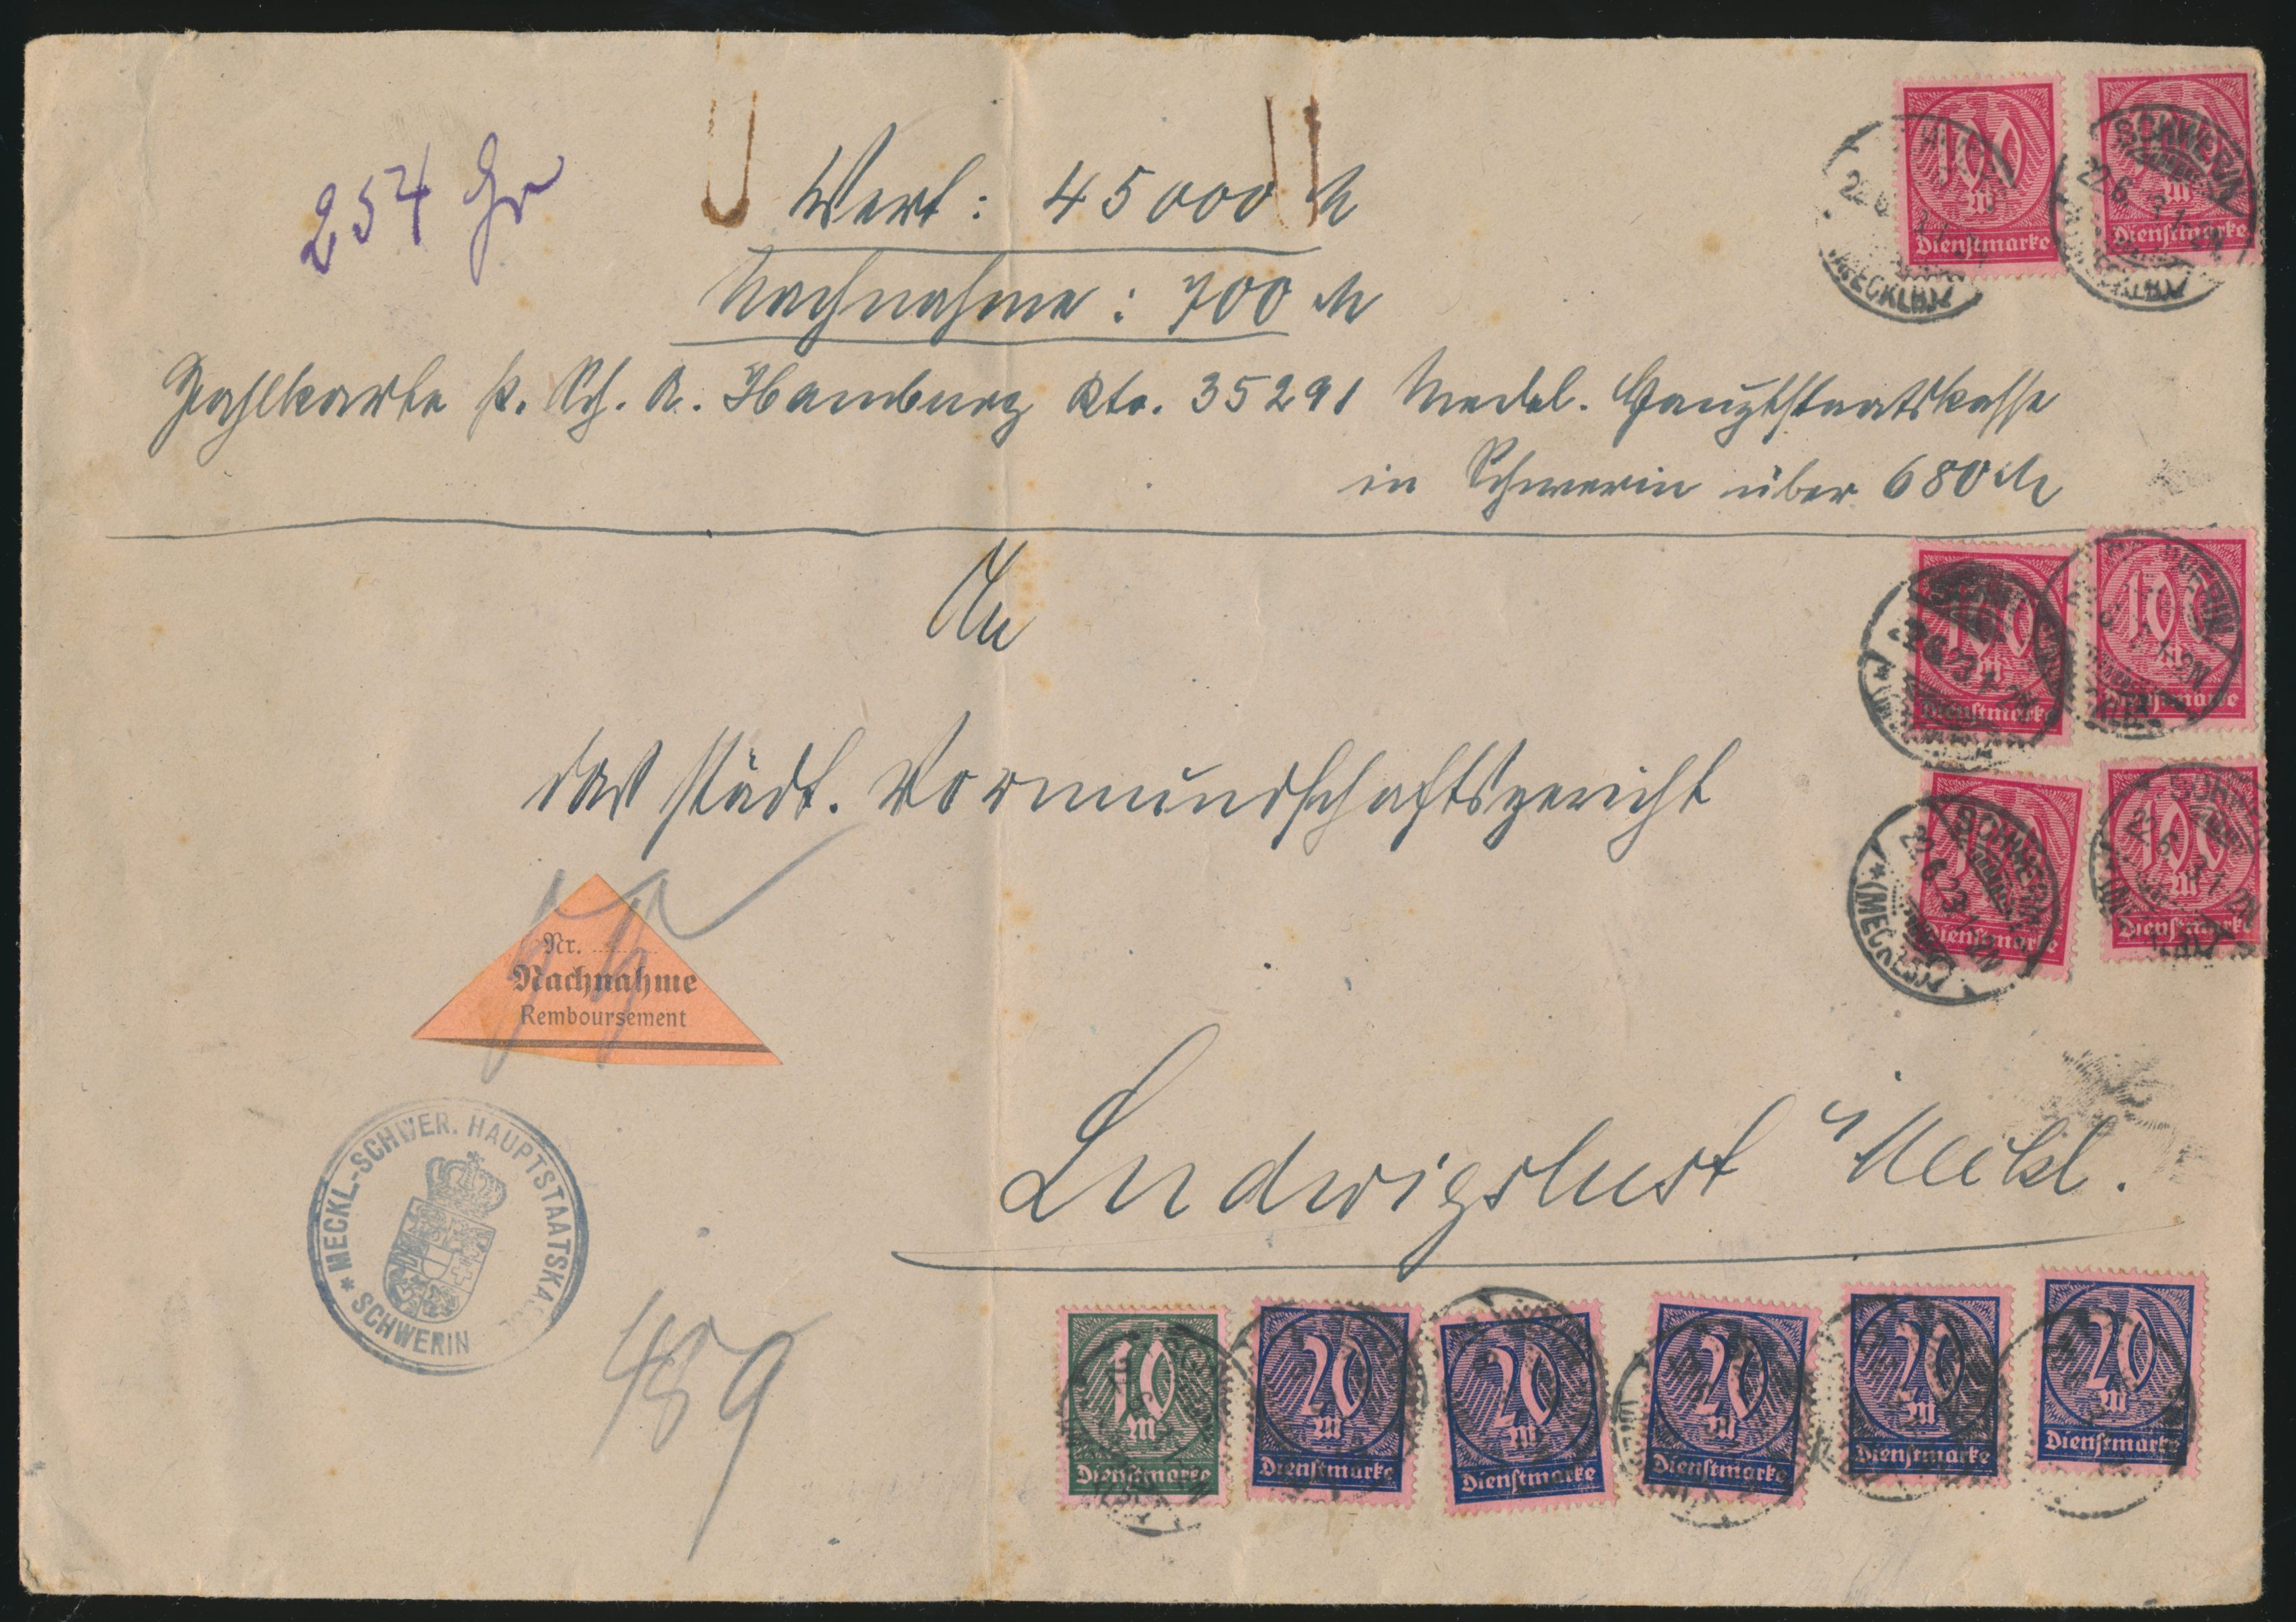 254 Gr
Wert: 45000 M
Nachnahme: 700 M
Zahlkarte P. Sch. A. Hamburg Kto. 35291 Meckl. Hauptstaatskasse
in Schwerin über 680 M
An
das städt. Vormundschaftsgericht
Ludwigslust i/Meckl.
Nr.
Nachnahme
Remboursement
* MECKL.-SCHWER. HAUPTSTAATSKASSE
SCHWERIN
489
100
M
Dienstmarke
100
M
Dienstmarke
100
M
Dienstmarke
100
M
Dienstmarke
100
M
Dienstmarke
100
M
Dienstmarke
SCHWERIN
22.6.23.1-2N
*(MECKLB.)
10
M
Dienstmarke
20
M
Dienstmarke
20
M
Dienstmarke
20
M
Dienstmarke
20
M
Dienstmarke
20
M
Dienstmarke